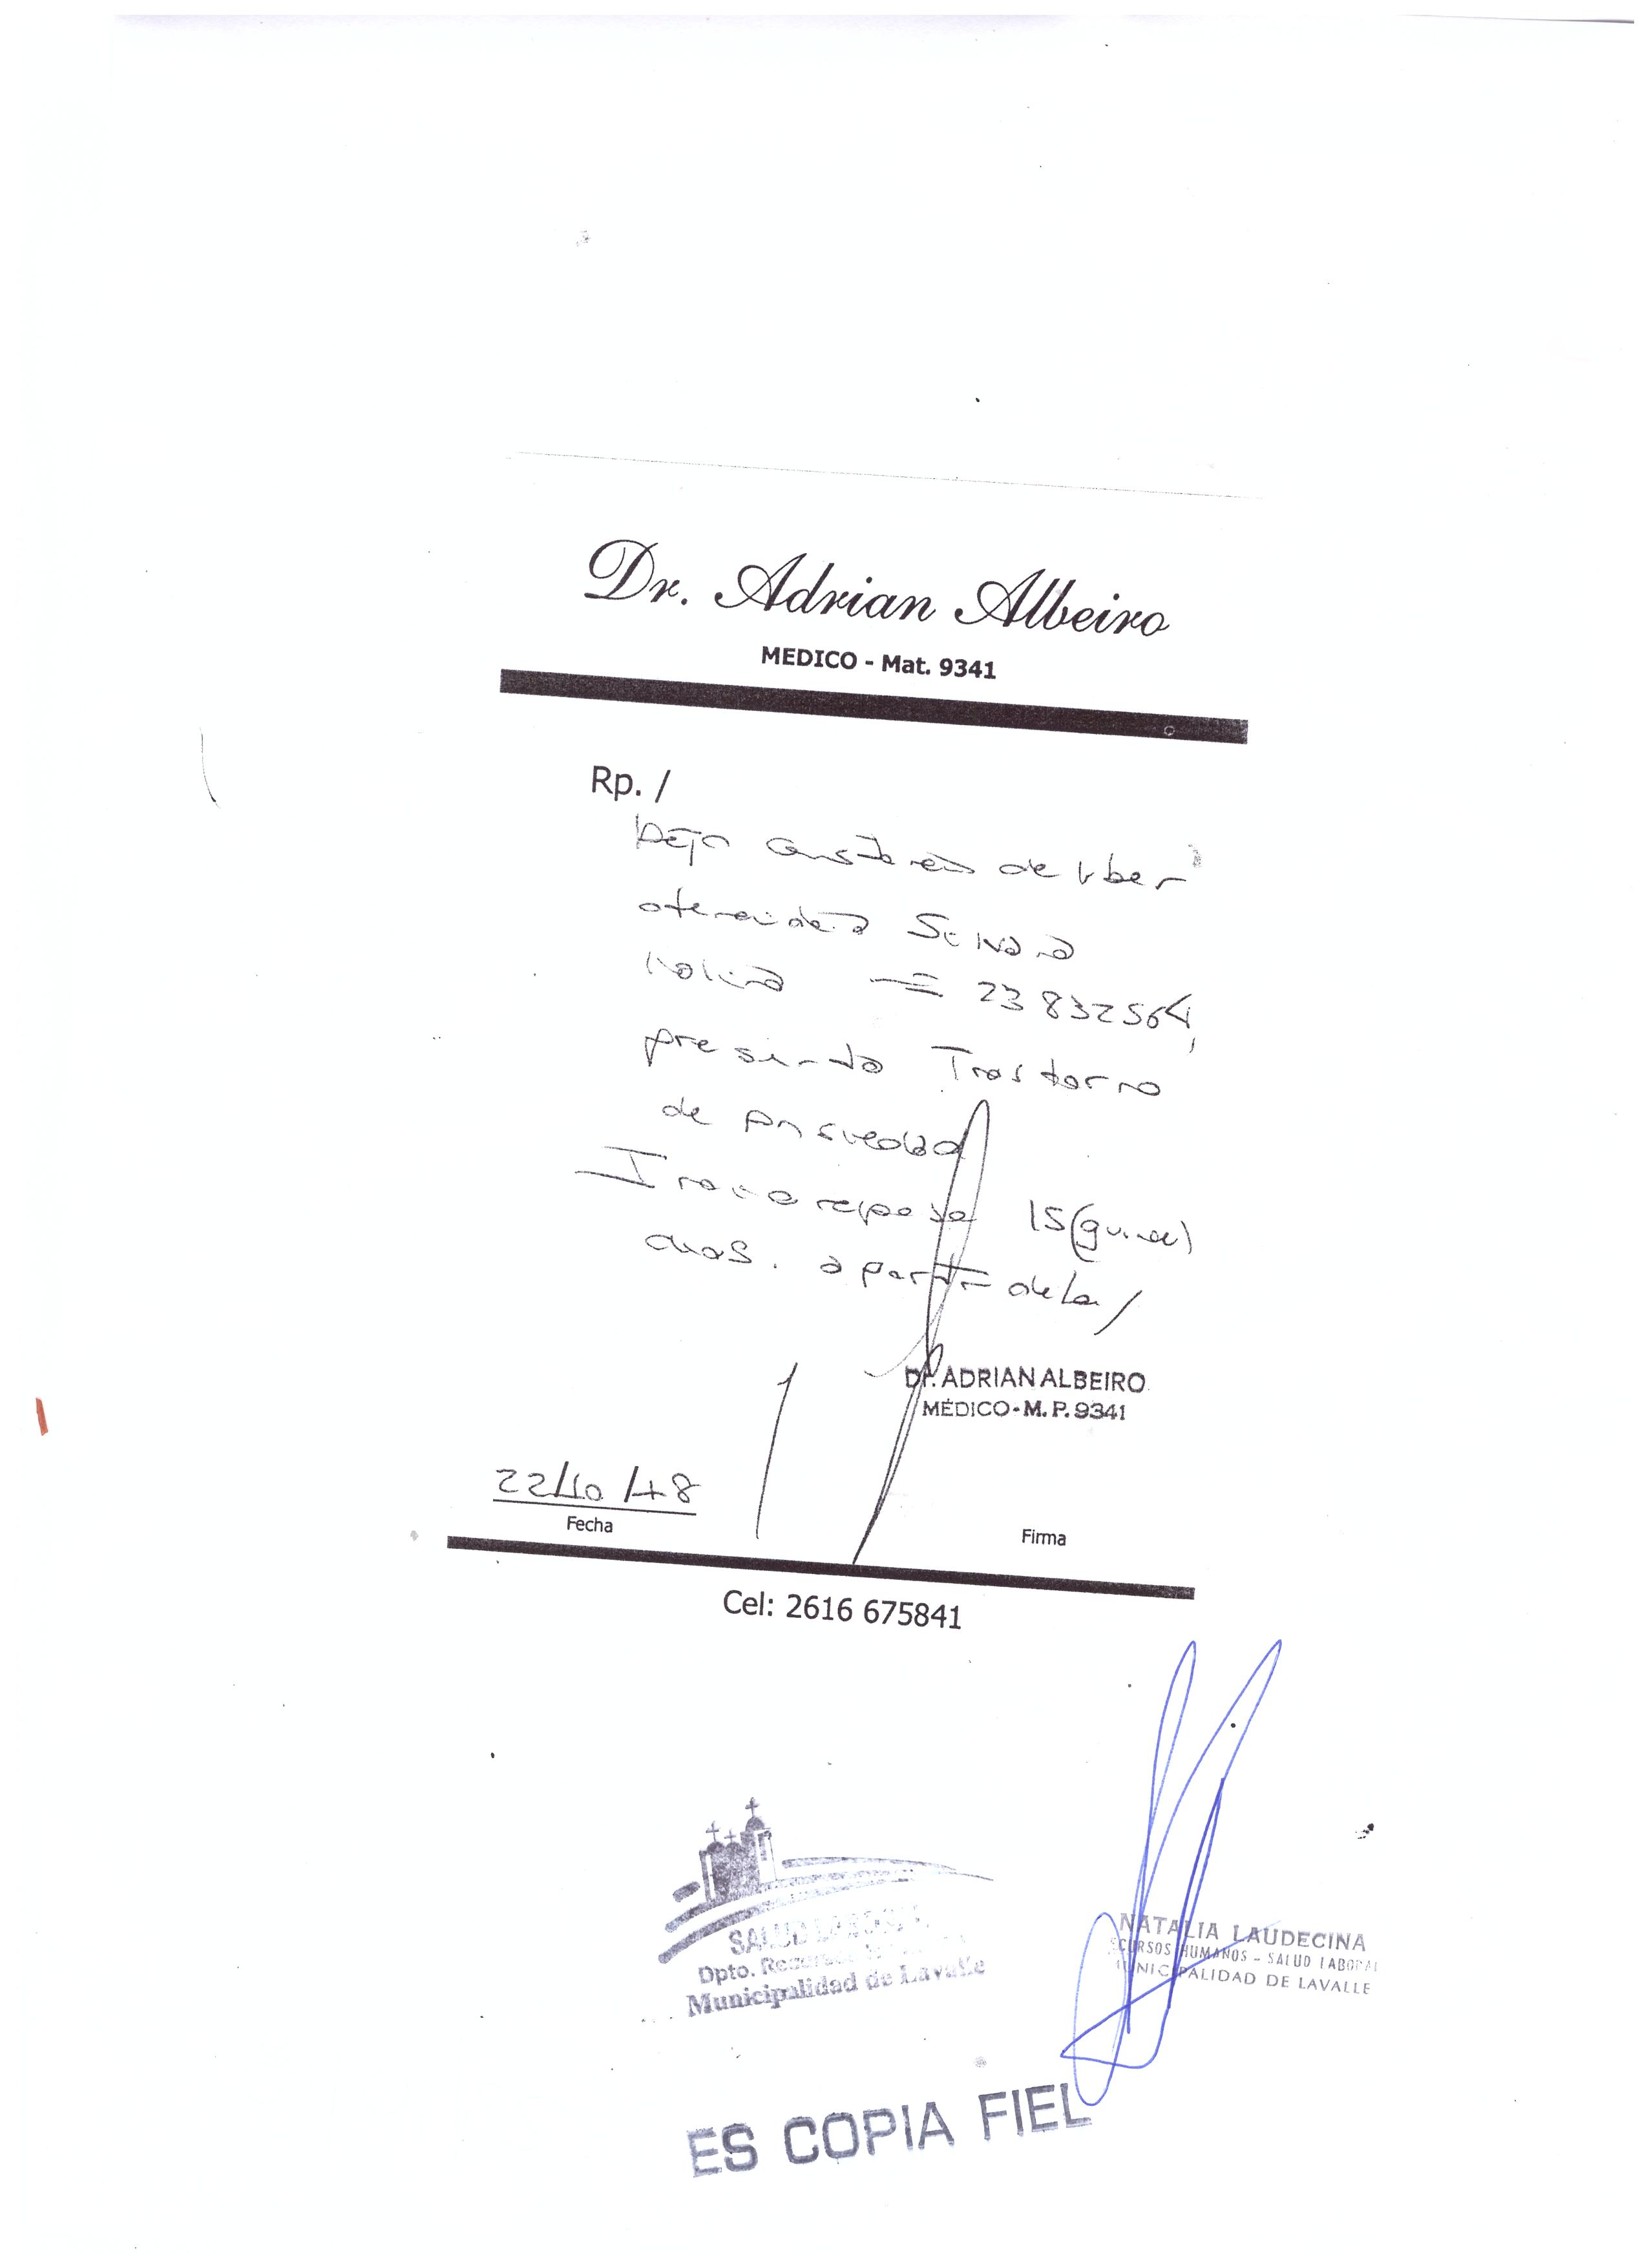 Dr. Adrian Albeiro
MEDICO - Mat. 9341
Rp. /
Dejo constancia de haber
atendido a
23832564,
presenta Trastorno
de Ansiedad
reposo 15 (quince)
dias. a partir de la /
Dr. ADRIAN ALBEIRO
MÉDICO - M. P. 9341
22/10/18
Fecha
Firma
Cel: 2616 675841
SALUD LABORAL
Dpto. Recursos
Municipalidad de Lavalle
NATALIA LAUDECINA
RECURSOS HUMANOS - SALUD LABORAL
MUNICIPALIDAD DE LAVALLE
ES COPIA FIEL